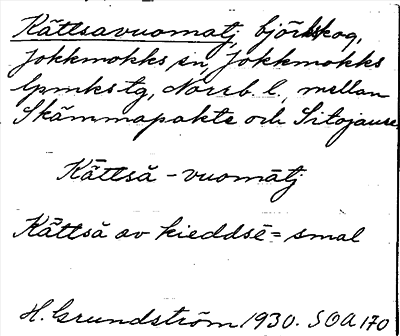 Kättsavuomatj, björkskog,
Jokkmokks sn, Jokkmokks
lpmkstg, Norrb. l., mellan
Skämmapakte och Sitojaure.
Kättså - vuomātj
Kättså av kieddsē = smal
H. Grundström 1930. SOA 170